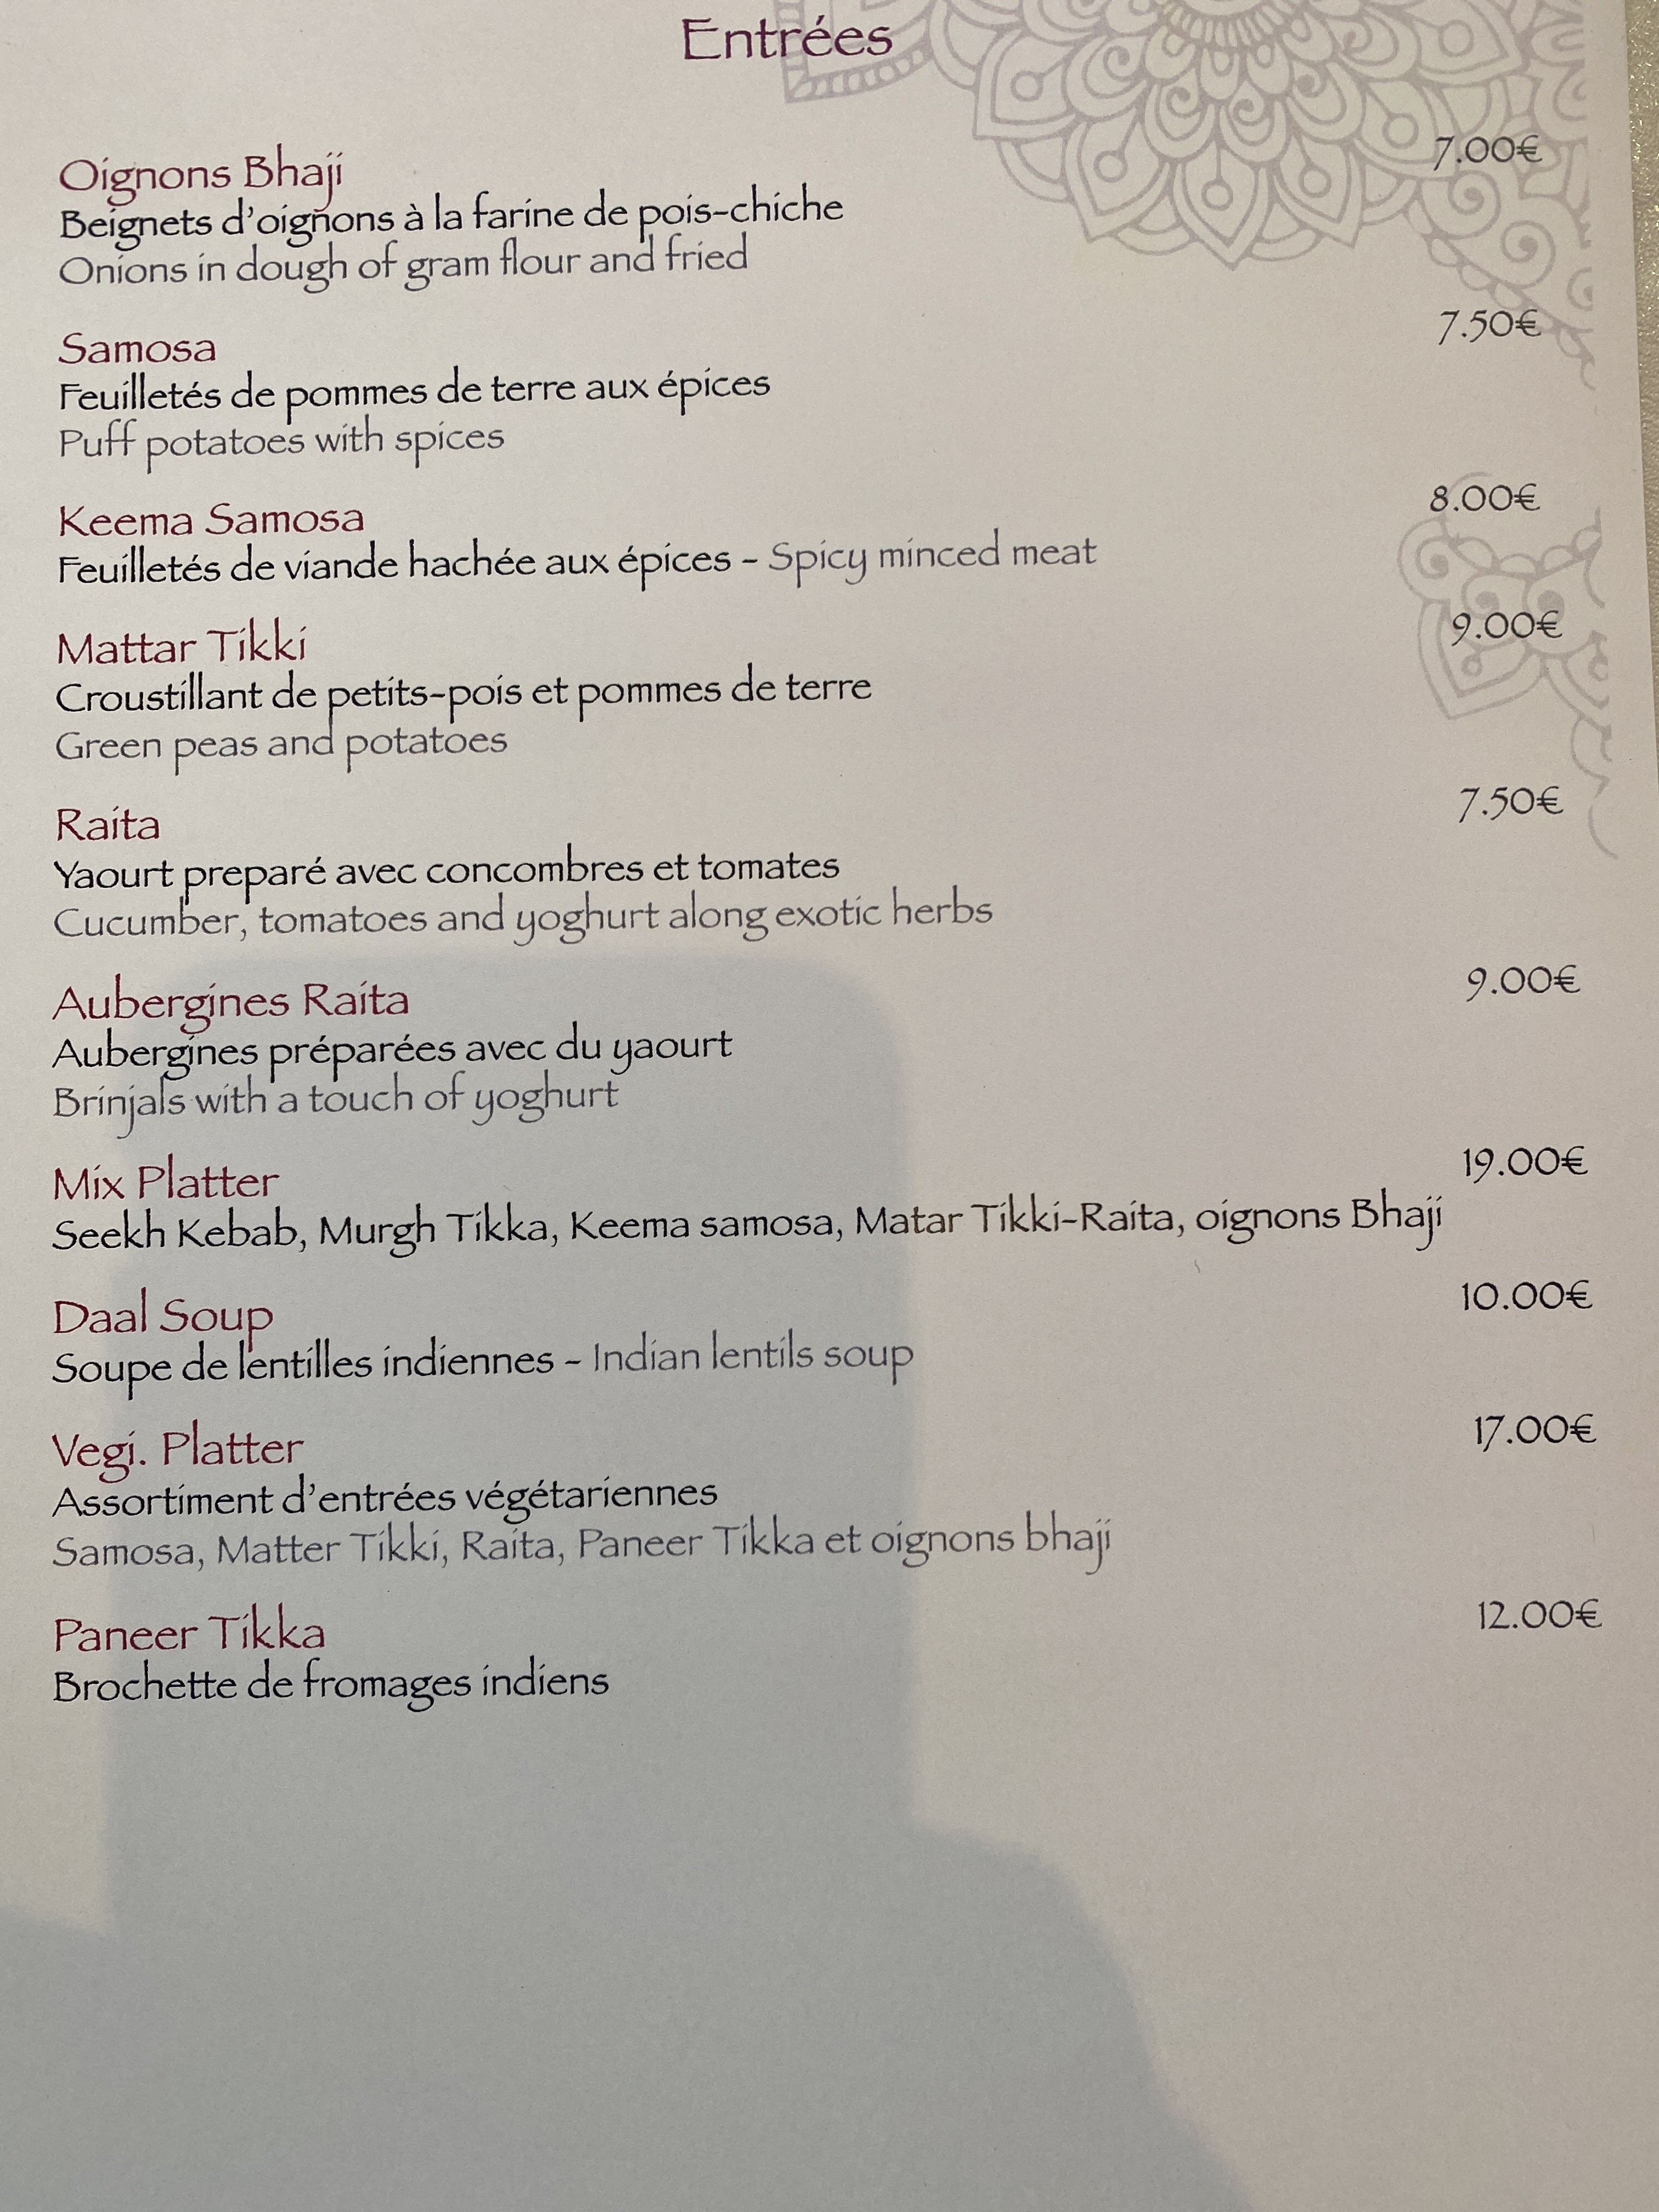 Entrées
Oignons Bhaji 7.00€
Beignets d'oignons à la farine de pois-chiche
Onions in dough of gram flour and fried
Samosa 7.50€
Feuilletés de pommes de terre aux épices
Puff potatoes with spices
Keema Samosa 8.00€
Feuilletés de viande hachée aux épices - Spicy minced meat
Mattar Tikki 9.00€
Croustillant de petits-pois et pommes de terre
Green peas and potatoes
Raita 7.50€
Yaourt preparé avec concombres et tomates
Cucumber, tomatoes and yoghurt along exotic herbs
Aubergines Raita 9.00€
Aubergines préparées avec du yaourt
Brinjals with a touch of yoghurt
Mix Platter 19.00€
Seekh Kebab, Murgh Tikka, Keema samosa, Matar Tikki-Raita, oignons Bhaji
Daal Soup 10.00€
Soupe de lentilles indiennes - Indian lentils soup
Vegi. Platter 17.00€
Assortiment d'entrées végétariennes
Samosa, Matter Tikki, Raita, Paneer Tikka et oignons bhaji
Paneer Tikka 12.00€
Brochette de fromages indiens